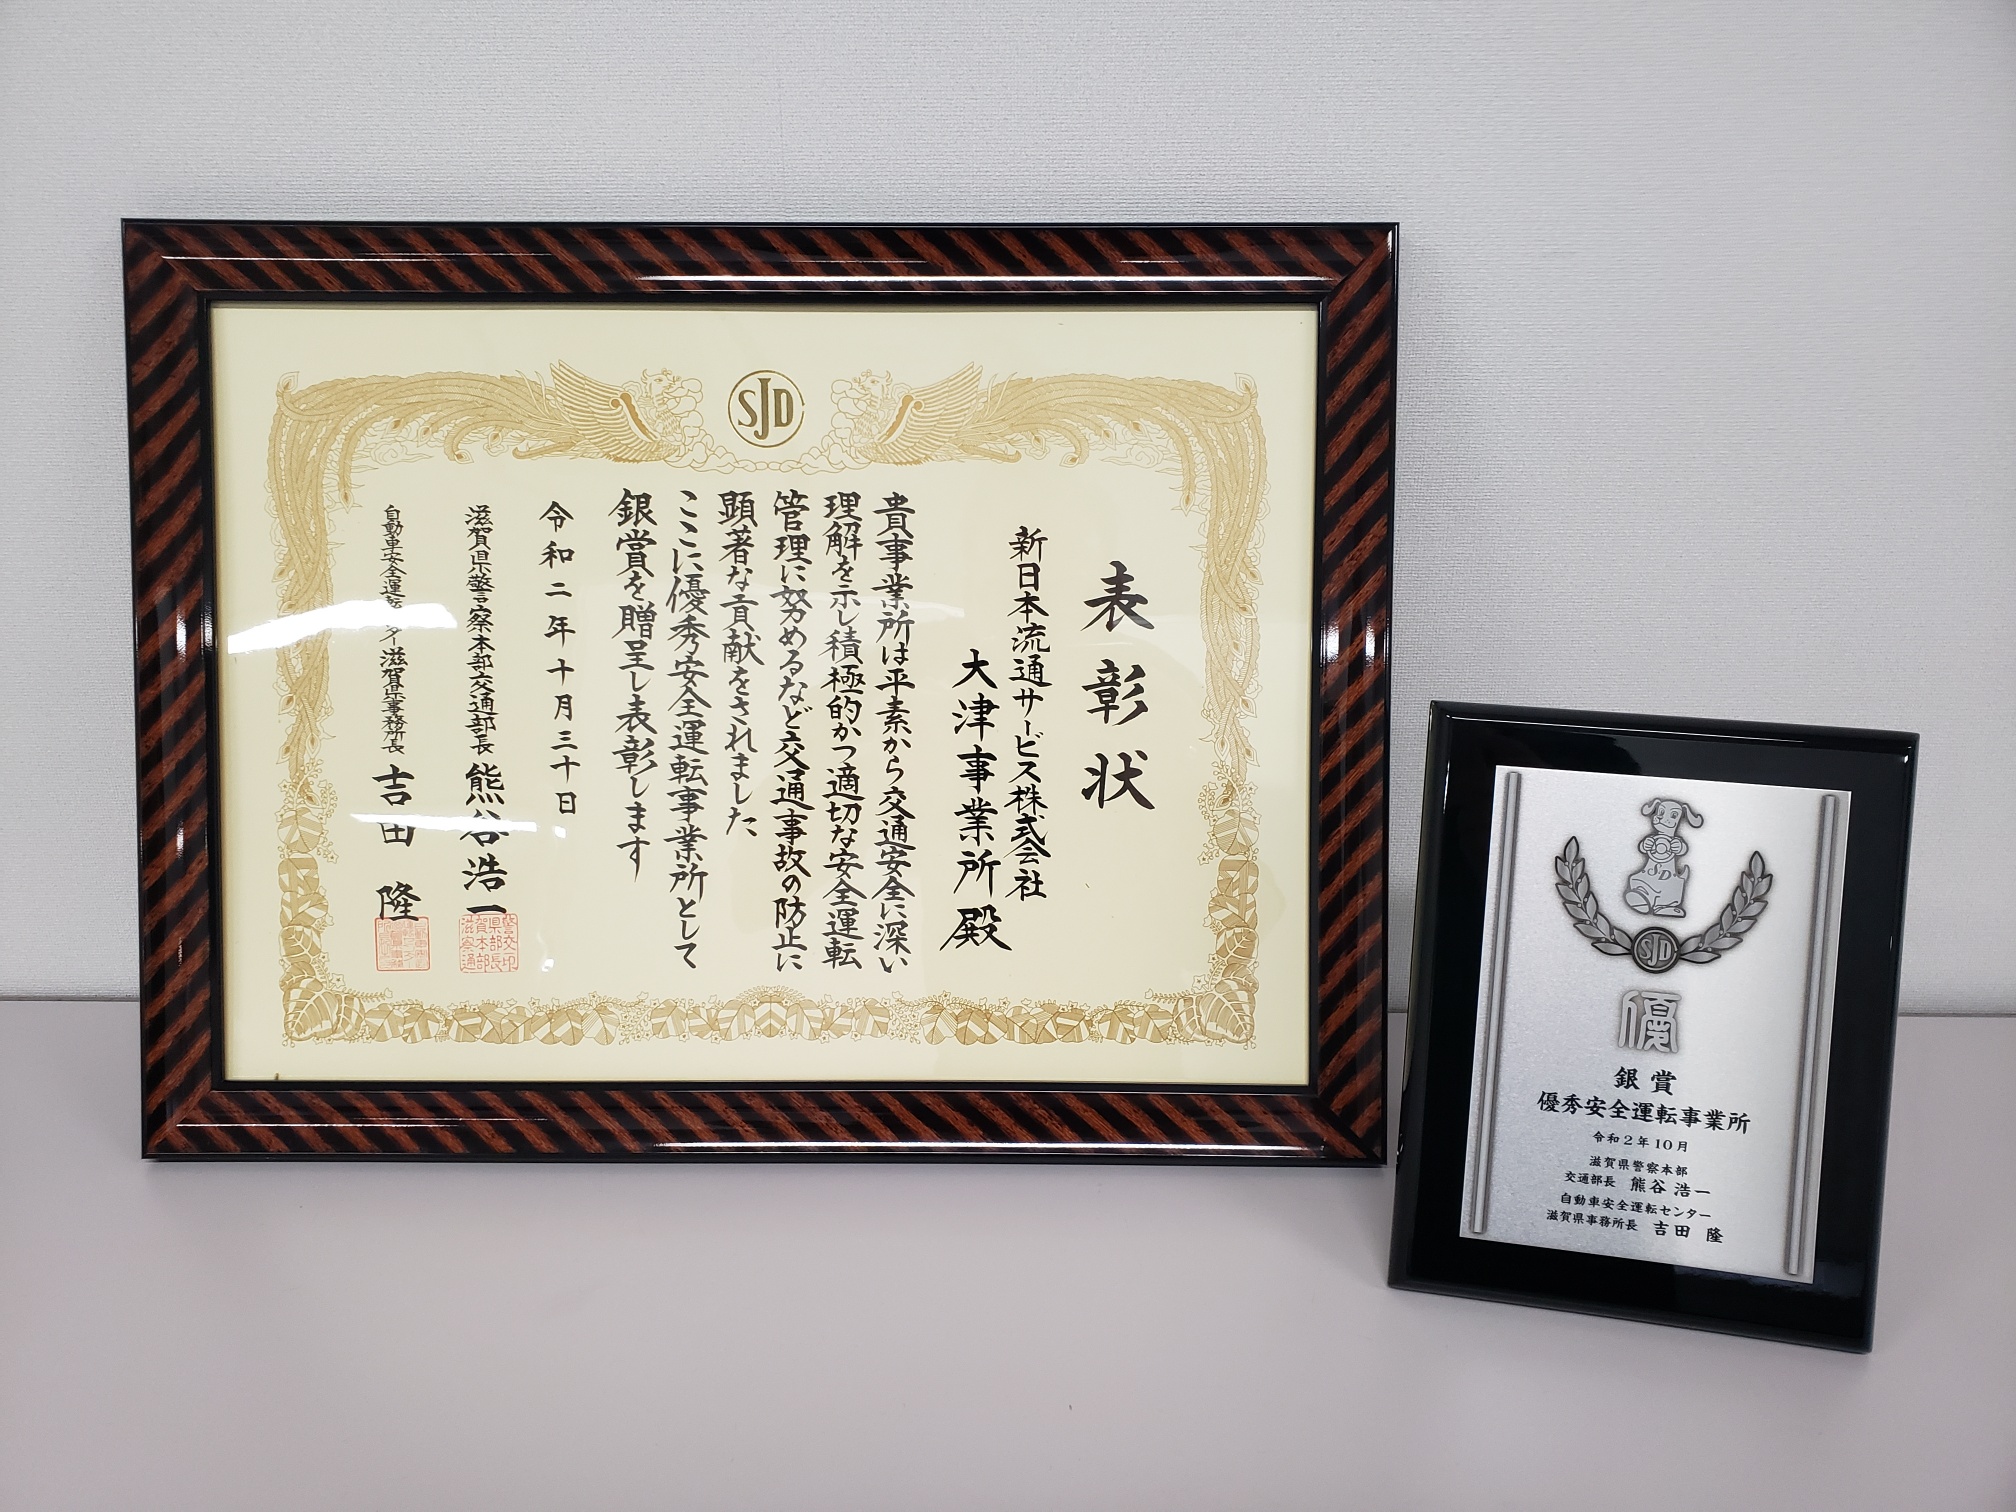 SJD
表彰状
新日本流通サービス株式会社
大津事業所殿
貴事業所は平素から交通安全に深い
理解を示し積極的かつ適切な安全運転
管理に努めるなど交通事故の防止に
顕著な貢献をされました
ここに優秀安全運転事業所として
銀賞を贈呈し表彰します
令和二年十月三十日
滋賀県警察本部交通部長 熊谷浩一
自動車安全運転 ター滋賀県事務所長 吉田 隆
SD
SJD
優
銀賞
優秀安全運転事業所
令和2年10月
滋賀県警察本部
交通部長 熊谷 浩一
自動車安全運転センター
滋賀県事務所長 吉田 隆